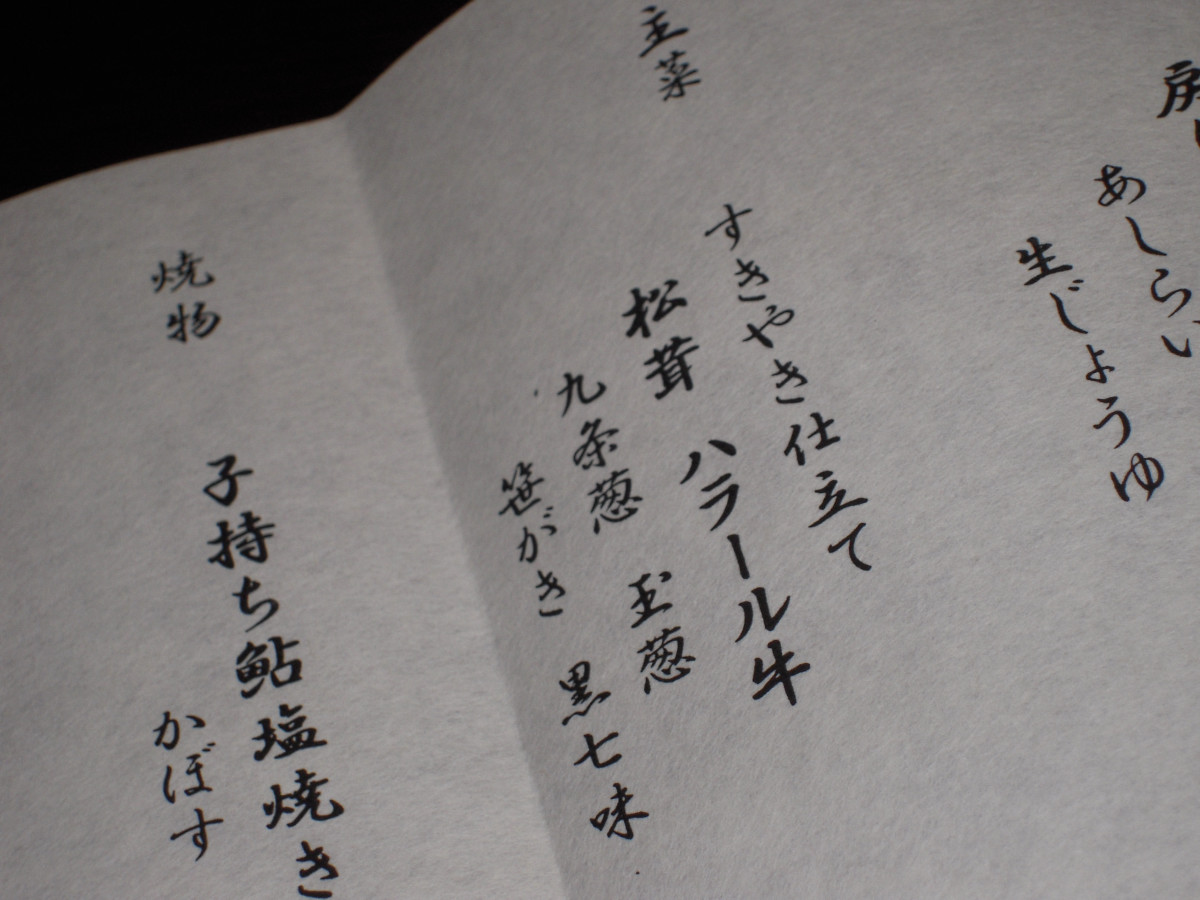 あしらい
生じょうゆ
主菜
すきやき仕立て
松茸 ハラール牛
九条葱 玉葱
笹がき 黒七味
焼物
子持ち鮎塩焼き
かぼす